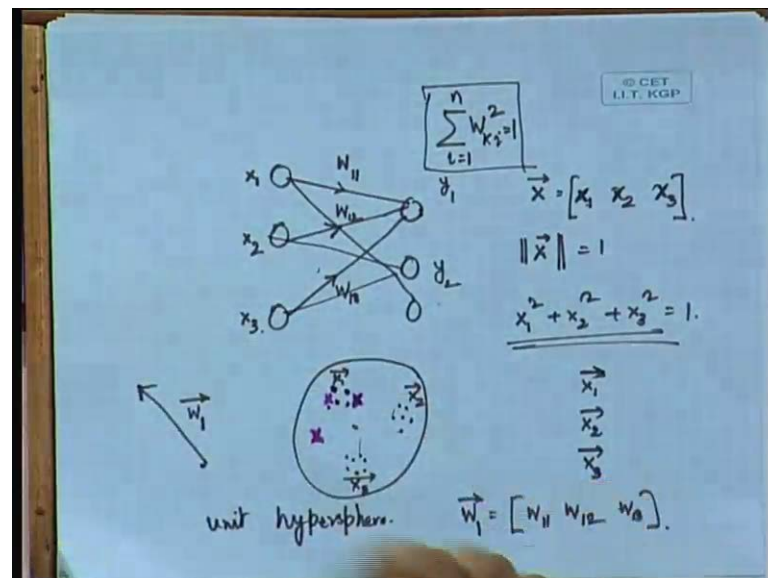 © CET
I.I.T. KGP
n
∑ W²ₖᵢ=1
i=1
x₁
W₁₁
y₁
x⃗ = [x₁ x₂ x₃].
W₁₂
x₂
‖x⃗‖ = 1
y₂
W₁₃
x₃.
x₁² + x₂² + x₃² = 1.
x⃗₁
x⃗₂
x⃗₃
w⃗₁
x⃗₃
unit hypersphere.
w⃗₁ = [W₁₁ W₁₂ W₁₃].